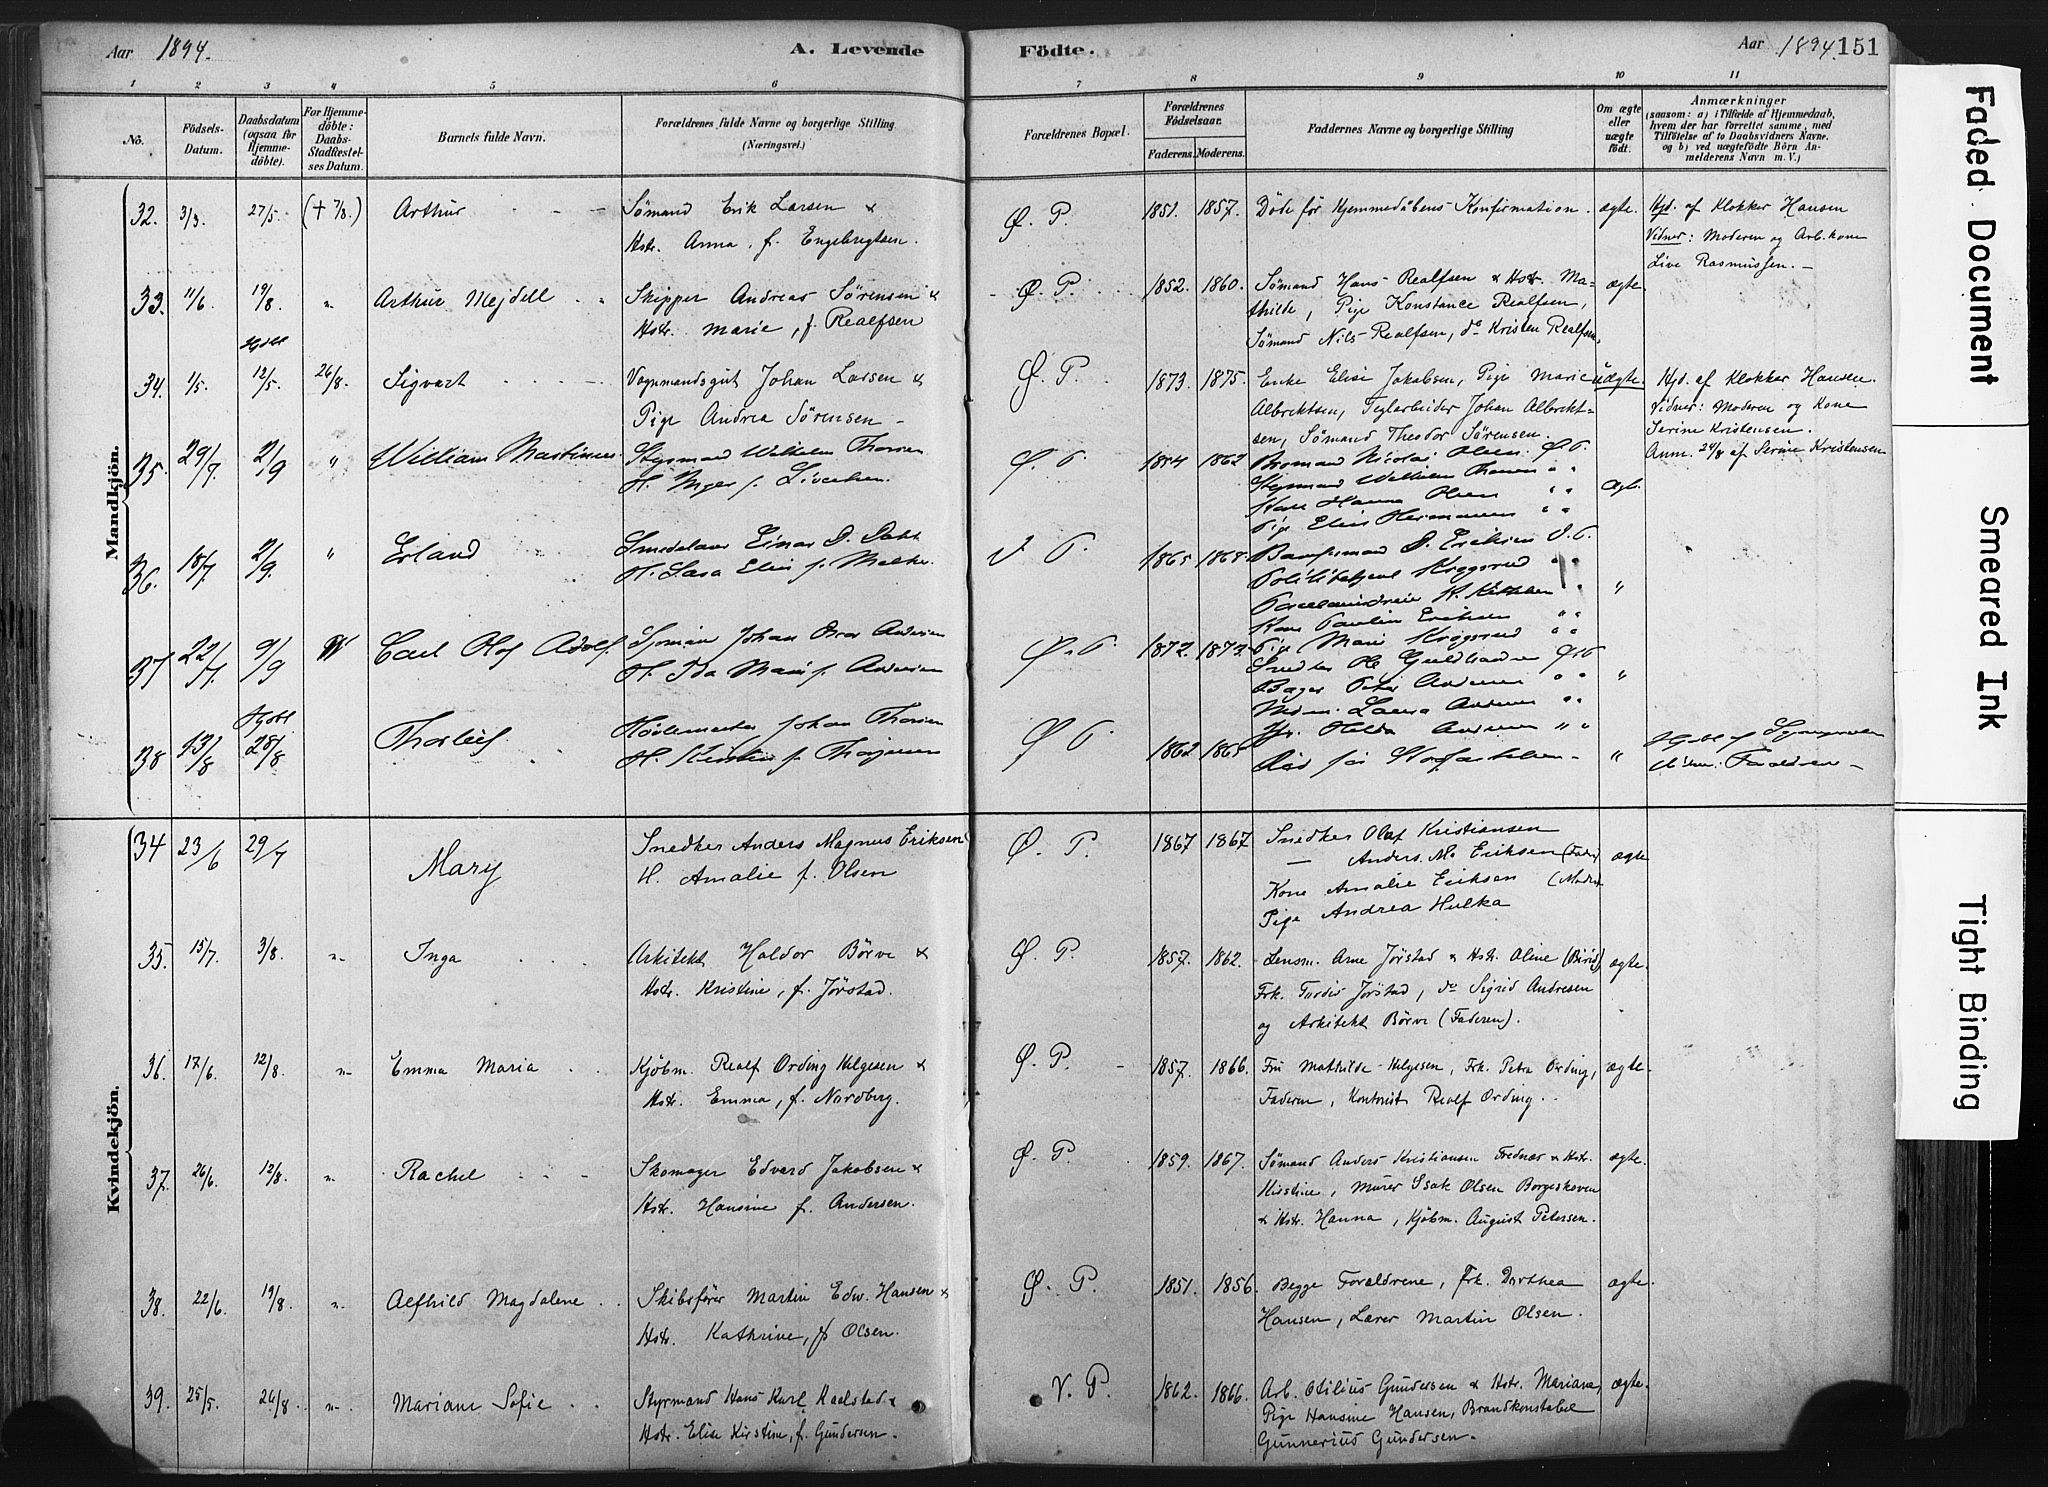 Aar 1894. A. Levende Födte. Aar 1894. 151
1 2 3 4 5 6 7 8 9 10 11
No.
Födsels-Datum.
Daabsdatum (ogsaa för Hjemmedöbte).
For Hjemmedöbte: Daabs-Stadfestelses Datum.
Barnets fulde Navn.
Forældrenes fulde Navne og borgerlige Stilling (Næringsvei.)
Forældrenes Bopæl.
Forældrenes Födselsaar.
Faderens. Moderens.
Faddernes Navne og borgerlige Stilling
Om ægte eller uægte födt.
Anmærkninger
(saasom: a) i Tilfælde af Hjemmedaab, hvem der har forrettet samme, med Tilföielse af to Daabsvidners Navne. og b) ved uægtefödte Börn Anmelderens Navn m. V.)
Mandkjön.
32. 3/3 27/5 (+ 7/8.) Arthur Sömand Erik Larsen & Ø. P. 1851. 1857. Döde för Hjemmedåbens Konfirmation. ægte. Hjd. af Klokker Hansen
Hstr. Anna, f. Engebregtsen. Vidner: Moderen og Arb.kone
Live Rasmussen. —
33. 11/6 19/8 " Arthur Mejdell Skipper Andreas Sörensen & Ø. P. 1852. 1860. Sömand Hans Realfsen & Hstr. Ma- ægte
Hstr. Marie, f. Realfsen thilde, Pige Konstance Realfsen,
Sömand Nils Realfsen, do Kristen Realfsen.
Hjdbt
34. 1/5 12/5 26/8. Sigvart Vognmandsgut Johan Larsen & Ø. P. 1873. 1875. Enke Elise Jakobsen, Pige Marie uægte. Hjd. af Klokker Hansen.
Pige Andrea Sörensen — Albrektsen, Teglarbeider Johan Albrekt- Vidner: Moderen og Kone
sen, Sömand Theodor Sörensen. Serine Kristensen.
Anm. 24/8 af Serine Kristensen
35. 29/7. 2/9 " William Martinus Styrmand Wilhelm Thorsen Ø. P. 1854 1862 Nicolai Olsen Ø. P.
H. Inger f. Styrmand Wilhelm Thorsen " " Ægte.
Kone Hanna Olsen " "
Pige Elise Hermansen " "
36. 18/7 2/9. " Erland Einar D. V. P. 1865 1868. D. Eriksen V. P.
H. Sara Elin f. Kroggsrud " " "
Kone Pauline Eriksen " "
Pige Marie Kroggsrud " "
37 22/7. 9/9 " Carl Olof Adolf. Sjöman Johan Oscar Andersen Ø. P. 1872. 1872 Snedker Ole Ø. P
H. Ida Marie f. Andersen Bager Peter Andersen " " "
Laura Andersen " "
Hilda Andersen " "
Hjdbt
38 13/8 28/8 Thorleif Johan Thorsen Ø P. 1862 1865 Död för Stadfæstelsen — " Hjdbt af
H. Kirstine f. Vidn: Forældrene —
Kvindekjön.
34 23/6 29/7 Mary Snedker Anders Magnus Eriksen Ø. P. 1867 1867 Snedker Olaf Kristiansen
H. Amalie f. Olsen — Anders M. Eriksen (Fader) ægte
Kone Amalie Eriksen (Moder
Pige Andrea Hulka
35. 15/7. 3/8. "- Inga Arkitekt Haldor Börve & Ø. P. 1857. 1862. Lensm. Arne Jörstad & Hstr. Oline (Biri), ægte.
Hstr. Kristine, f. Jörstad. Frk. Tordis Jörstad, do Sigrid Andresen
og Arkitekt Börve (Faderen).
36. 17/6. 12/8. "- Emma Maria Kjöbm. Realf Ording Helgesen & Ø. P. 1857. 1866. Fru Mathilde Helgesen, Frk. Petra Ording, ægte
Hstr. Emma, f. Nordberg. Faderen, Kontorist Realf Ording.
37. 26/6. 12/8. "- Rachel Skomager Edvard Jakobsen & Ø. P. 1859. 1867. Sömand Anders Kristiansen Frednæs & Hstr. ægte.
Hstr. Hansine f. Andersen. Kirstine, Murer Isak Olsen Borgeskoven
& Hstr. Hanna, Kjöbm. August Petersen.
38. 22/6. 19/8. "- Alfhild Magdalene Skibsförer Martin Edw. Hansen & Ø. P. 1851. 1856. Begge Forældrene, Frk. Dorthea ægte.
Hstr. Kathrine, f. Olsen. Hansen, Lærer Martin Olsen.
39. 25/5. 26/8. "- Mariane Sofie Styrmand Hans Karl Kaalstad & V. P. 1862. 1866. Arb. Otilius Gundersen & Hstr. Mariane, ægte.
Hstr. Elise Kirstine, f. Gundersen. Pige Hansine Hansen, Brandkonstabel
Gunnerius Gundersen.
Faded Document
Smeared Ink
Tight Binding